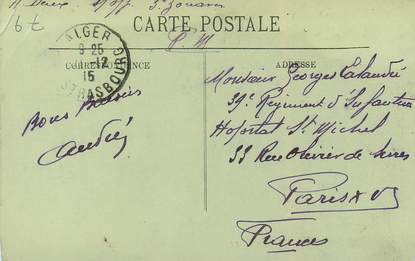 16 t
CARTE POSTALE
F. M.
ALGER
STRASBOURG
9 25
12
15
CORRESPONDANCE
ADRESSE
Bons Baisers
André
Monsieur Georges
39e Régiment d'Infanterie
Hopital St Michel
33 Rue Olivier de Serres
Paris XV
France